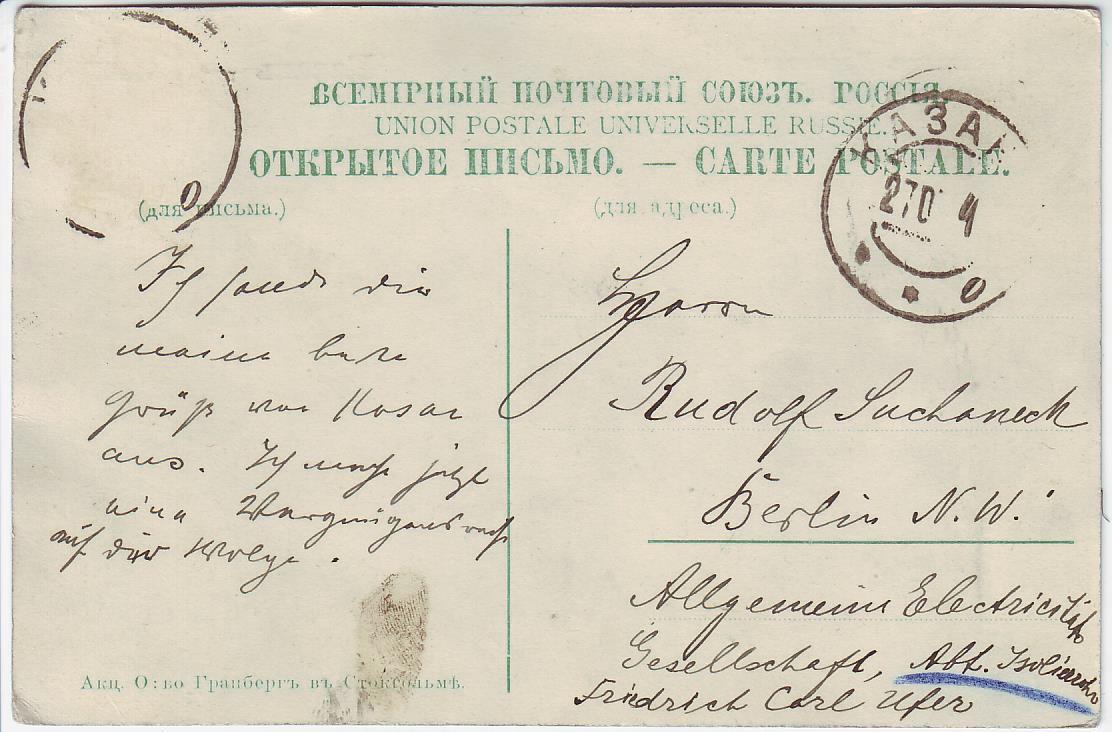 ВСЕМІРНЫЙ ПОЧТОВЫЙ СОЮЗЪ. РОССІЯ.
UNION POSTALE UNIVERSELLE RUSSIE.
ОТКРЫТОЕ ПИСЬМО. — CARTE POSTALE.
(для письма.)
(для адреса.)
КАЗАН
27 0 4
Ich sende dir
meine beste
Grüße von Kasan
aus. Ich mache jetzt
eine
auf der Wolga.
Herrn
Rudolf Suchaneck
Berlin N. W.
Allgemeine Electricitäts
Gesellschaft, Abt. Isolierrohr
Friedrich Carl Ufer
Акц. О: во Гранбергъ въ Стокгольмѣ.